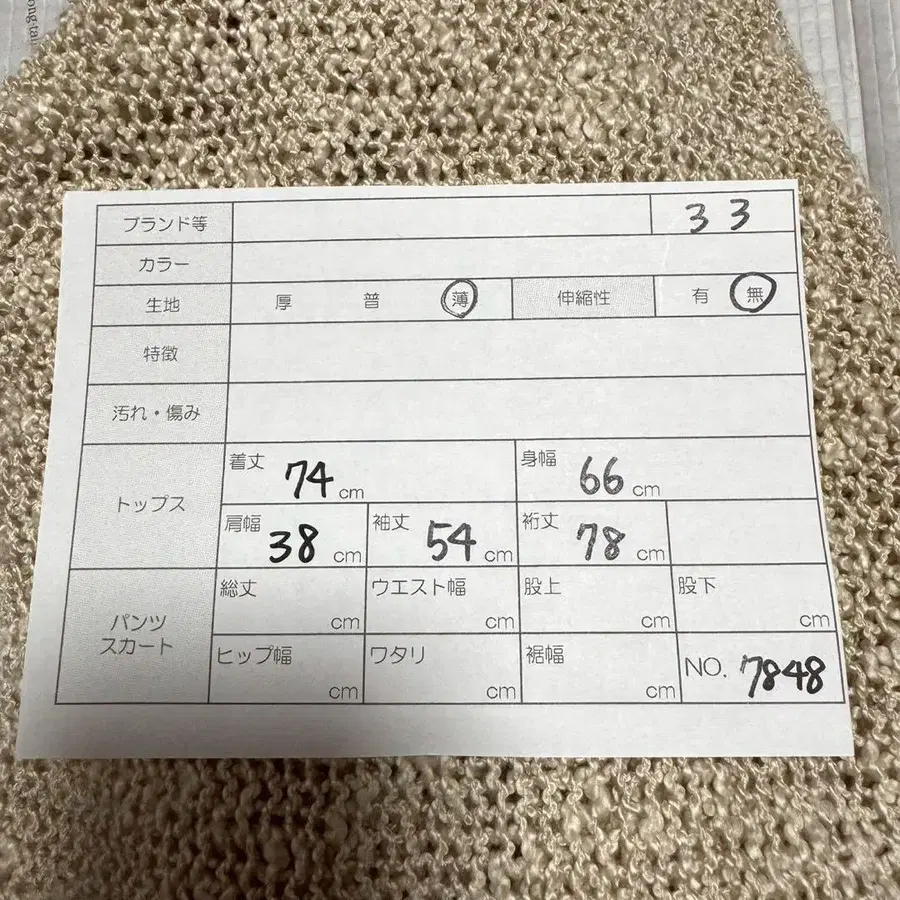 ong·tai
ブランド等 33
カラー
生地 厚 普 薄 伸縮性 有 無
特徴
汚れ・傷み
トップス
着丈 74 cm 身幅 66 cm
肩幅 38 cm 袖丈 54 cm 裄丈 78 cm
パンツ
スカート
総丈 cm ウエスト幅 cm 股上 cm 股下 cm
ヒップ幅 cm ワタリ cm 裾幅 cm NO. 7848